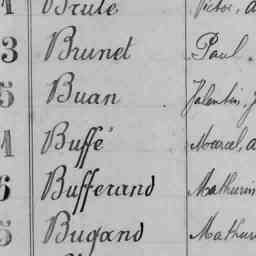 1 Brulé Victor, a
3 Brunet Paul.
5 Buan Valentin, J
1 Buffé Marcel, a
6 Bufferand Mathurin
5 Bugand Mathur